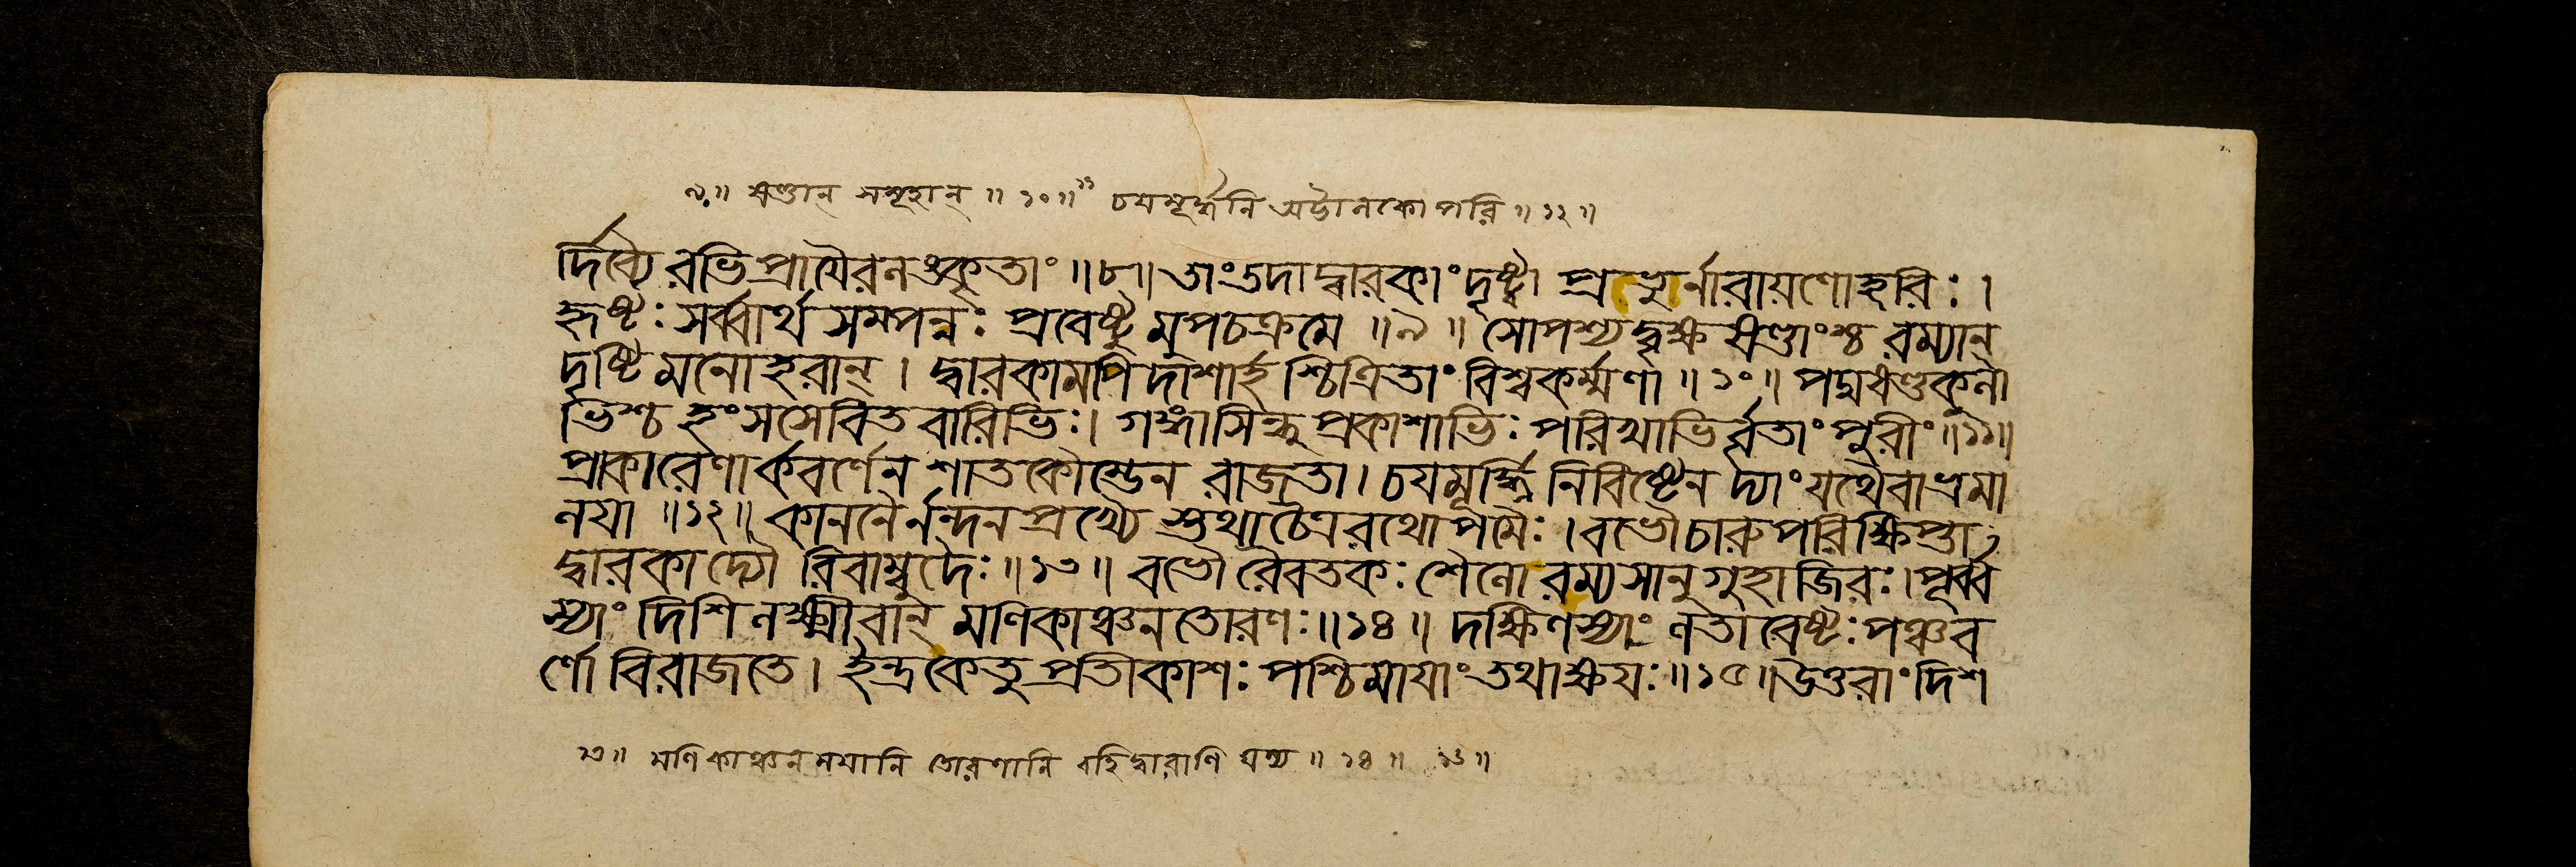 ৯॥ ষণ্ডান্ সমূহান্ ॥ ১০॥ ১১ চয়মূর্দ্ধনি অট্টালকোপরি ॥ ১২ ॥
র্দিব্যৈরভিপ্রায়ৈরলঙ্কৃতাং ॥৮॥ তাং তদা দ্বারকাং দৃষ্ট্বা প্রভুর্নারায়ণো হরিঃ ।
হৃষ্টঃ সর্ব্বার্থসম্পন্নঃ প্রবেষ্টুমুপচক্রমে ॥৯॥ সোপশ্যদ্বৃক্ষষণ্ডাংশ্চ রম্যান্
দৃষ্টিমনোহরান্ । দ্বারকামপি দাশার্হশ্চিত্রিতাং বিশ্বকর্ম্মণা ॥ ১০ ॥ পদ্মষণ্ডকুলা
ভিশ্চ হংসসেবিতবারিভিঃ। গঙ্গাসিন্ধুপ্রকাশাভিঃ পরিখাভির্বৃতাং পুরীং ॥১১॥
প্রাকারেণার্কবর্ণেন শাতকৌম্ভেন রাজতা । চয়মূর্দ্ধ্নি নিবিষ্টেন দ্যাং যথৈবাভ্রমা
লয়া ॥১২॥ কাননৈর্নন্দনপ্রখ্যৈস্তথা চৈত্ররথোপমৈঃ । বভৌ চারুপরিক্ষিপ্তা
দ্বারকা দ্যৌরিবাম্বুদৈঃ ॥১৩॥ বভৌ রৈবতকঃ শৈলো রম্যসানুগুহাজিরঃ। পূর্ব্ব
স্যাং দিশি লক্ষ্মীবান্ মণিকাঞ্চনতোরণঃ ॥১৪॥ দক্ষিণস্যাং লতাবেষ্টঃ পঞ্চব
র্ণো বিরাজতে । ইন্দ্রকেতুপ্রতীকাশঃ পশ্চিমায়াং তথাক্ষয়ঃ ॥১৫॥ উত্তরাং দিশ
১৩॥ মণিকাঞ্চনময়ানি তোরণানি বহির্দ্বারাণি যস্য ॥ ১৪ ॥ ১৫ ॥